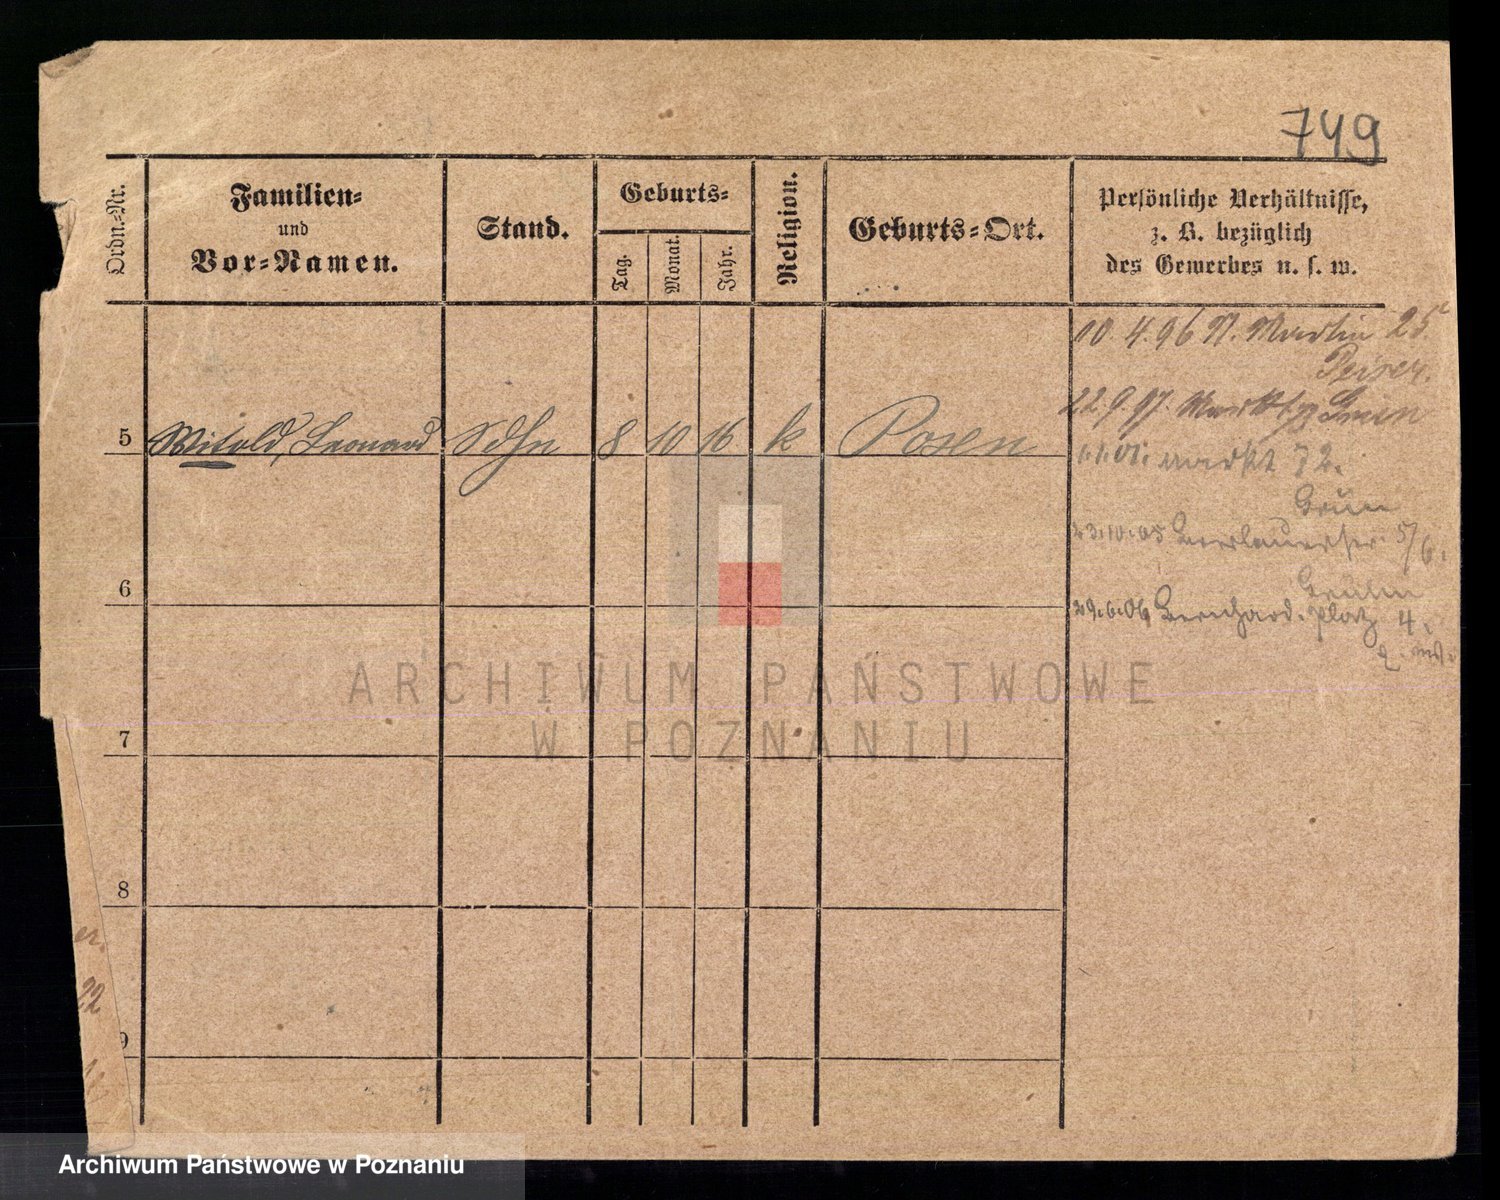 749
Ordn.-Nr.
Familien-
und
Vor-Namen.
Stand.
Geburts-
Tag.
Monat.
Jahr.
Religion.
Geburts-Ort.
Persönliche Verhältnisse,
z. B. bezüglich
des Gewerbes u. s. w.
10. 4. 96 St. Martin 25
22. 9. 97.
5 Witold, Leonard Sohn 8 10 16 k Posen
1.1.01. Markt 72.
23.10.05 5/6.
6
29.6.06 Bernhard. platz 4.
ARCHIWUM PAŃSTWOWE
W POZNANIU
7
8
er.
22
9
Archiwum Państwowe w Poznaniu